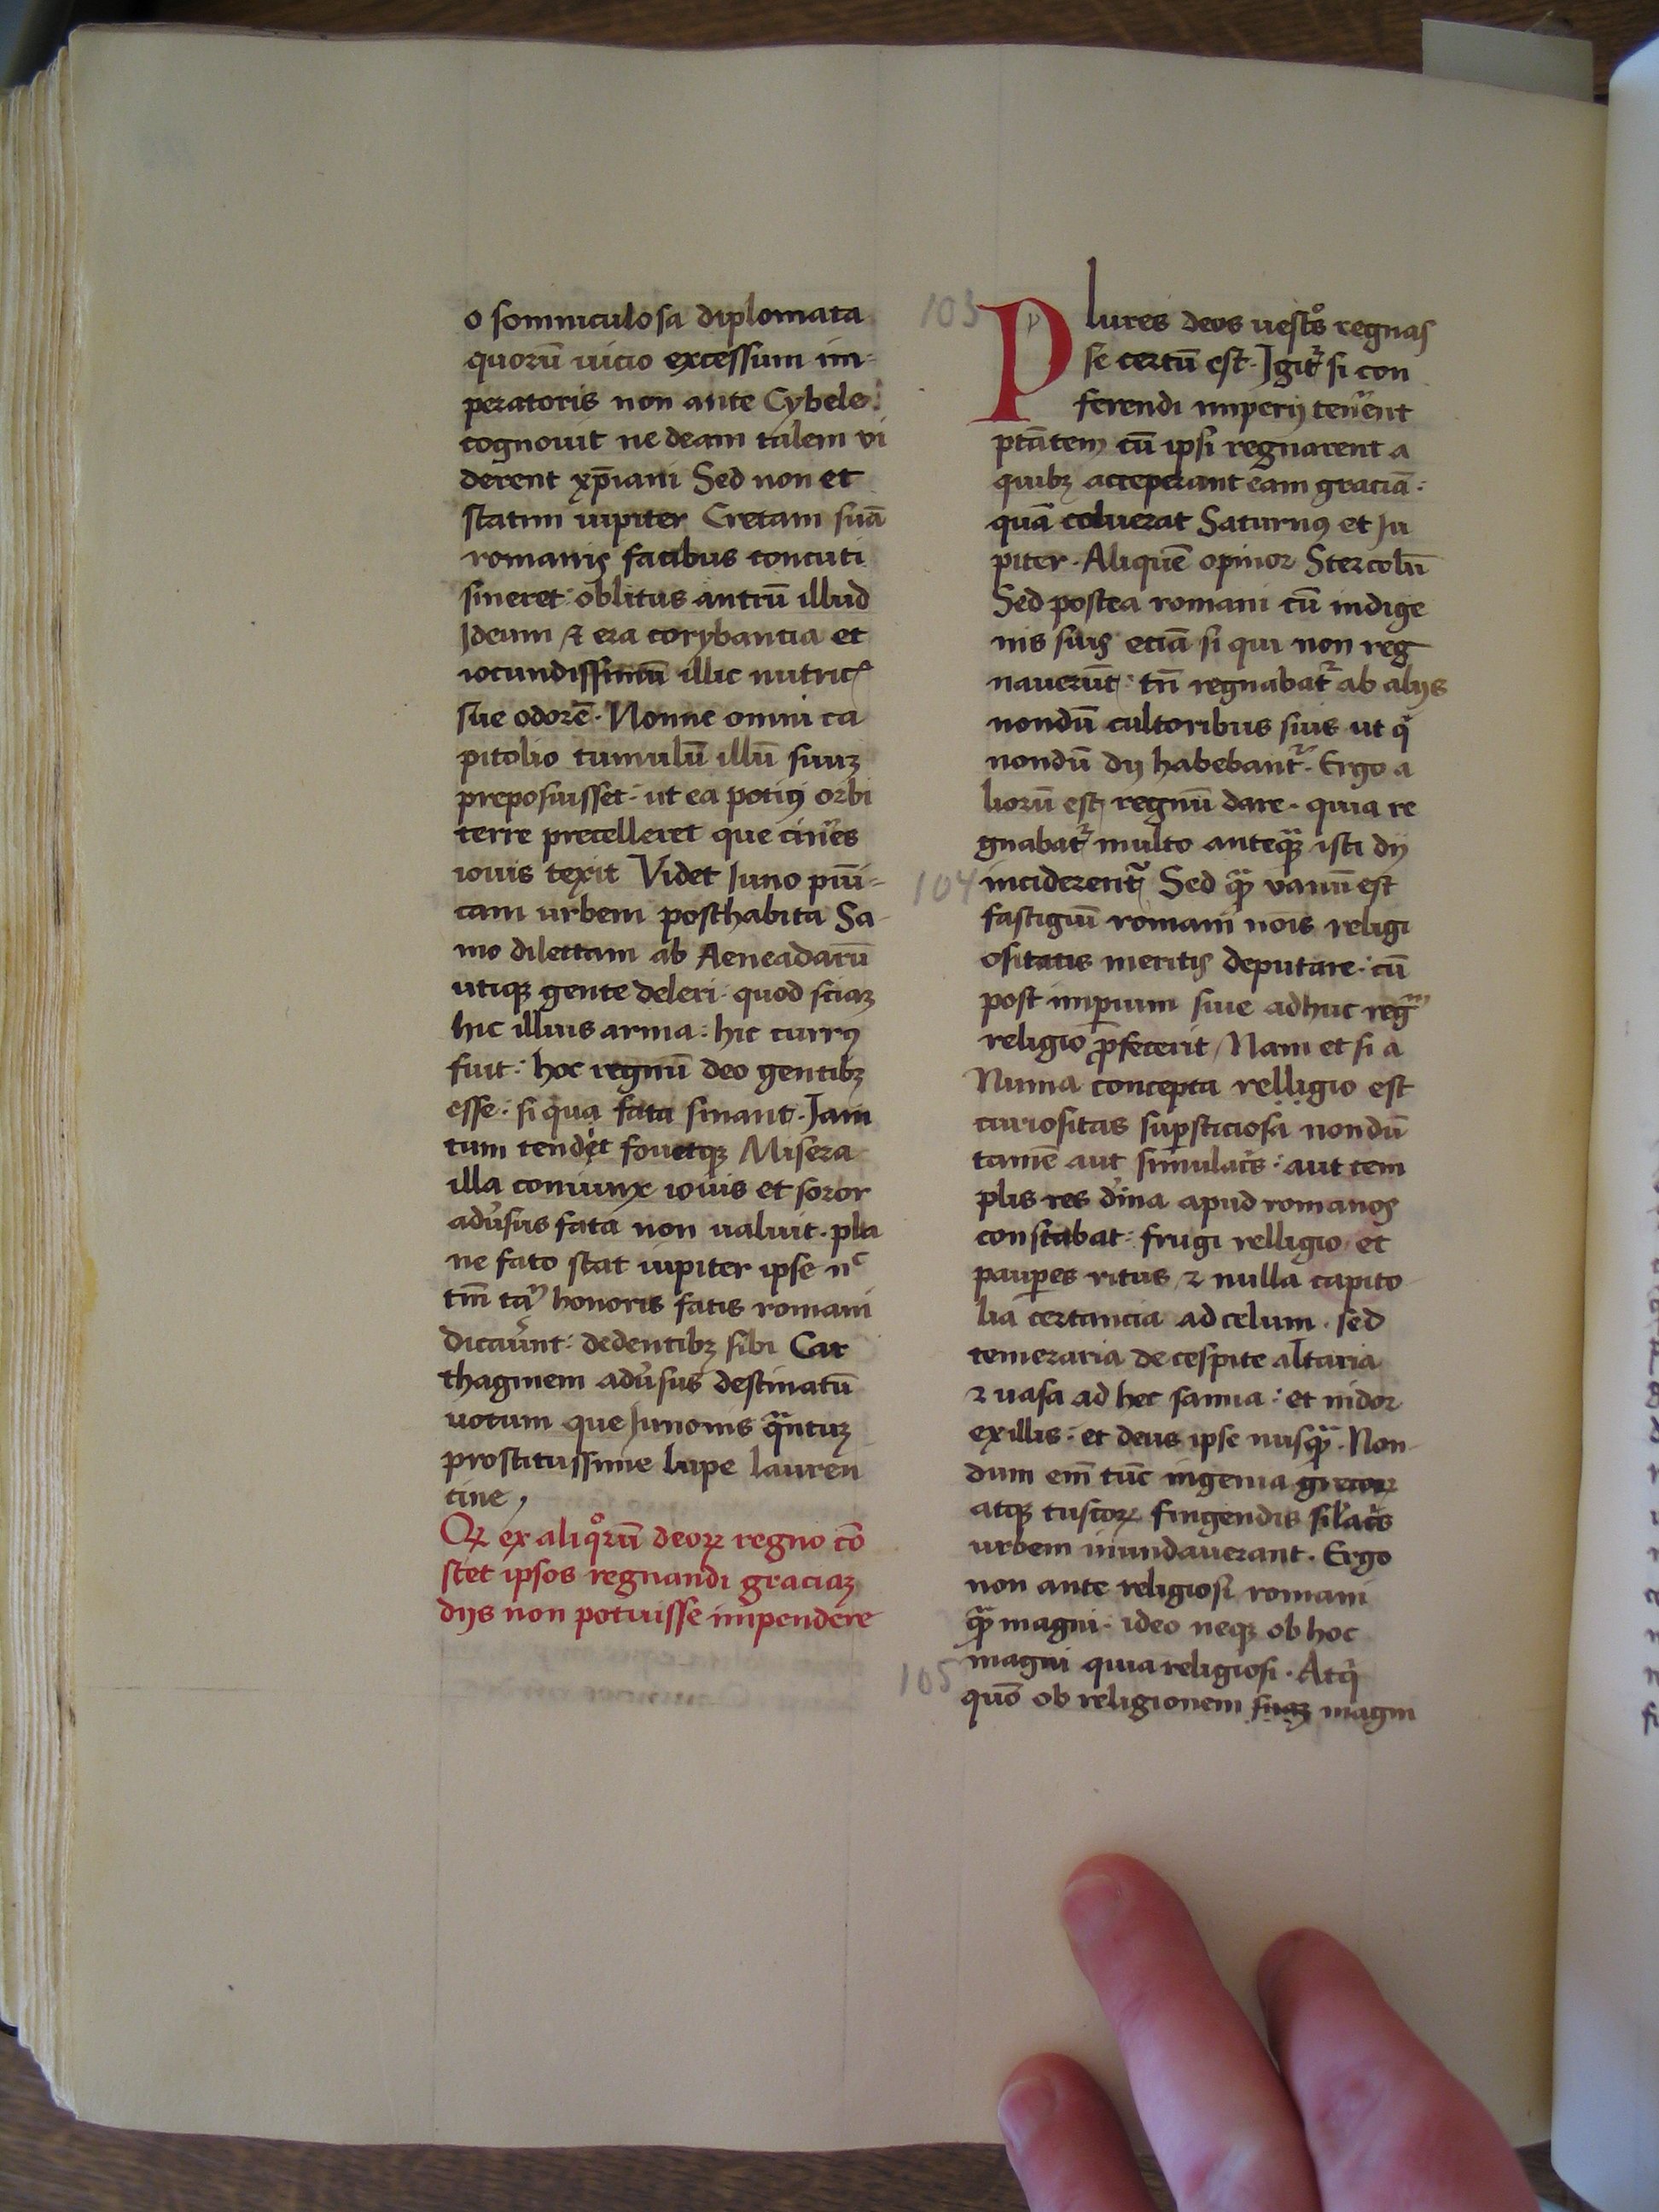 o somniculosa diplomata
quorū uicio excessum im-
peratoris non ante Cybele
cognouit ne deam talem vi
derent xp̄iani Sed non et
statim iupiter Cretam suā
romanis facibus concuti
sineret: oblitus antrū illud
Ideum & era corybantia et
iocundissimū illic nutric̄
sue odorē. Nonne omni ca
pitolio tumulū illū suuꝫ
preposuisset: ut ea potiꝰ orbi
terre precelleret que cin̄es
iouis texit Videt Juno pūi-
cam urbem posthabita Sa-
mo dilectam ab Aeneadarū
utiqꝫ gente deleri. quod sciaꝫ
hic illius arma: hic currꝰ
fuit: hoc regnū deo gentibꝫ
esse. si qua fata sinant. Jam
tum tendit fouetqꝫ Misera
illa coniunx iouis et soror
adūsus fata non ualuit. pla
ne fato stat iupiter ipse nᶜ
tm̄ tāᵐ honoris fatis romani
dicaūnt: dedentibꝫ sibi Car
thaginem adūsus destinatū
uotum que Junonis q̄ntuꝫ
prostitussime lupe lauren
tine,
Qꝛ ex aliqͦrū deoꝝ regno cō
stet ipsos regnandi graciaꝫ
diis non potuisse impendere
103 Plures deos uestͦs regnas
se certū est. Igit᷑ si con
ferendi imperij tenūent
ptātem cū ipsi regnarent a
quibꝫ acceperant eam graciā:
quā coluerat Saturnꝰ et Ju
piter. Aliquē opinor Stercolū
Sed postea romani cū indige
nis suis eciā si qui non reg
nauerūt: tn̄ regnabat᷑ ab alijs
nondū cultoribus suis ut qͥ
nondū dij habebant᷑. Ergo a
liorū est regnū dare. quia re
gnabat᷑ multo anteqꝫ isti dij
104 inciderent᷑ Sed qᷓ vanū est
fastigiū romani nōis religi
ositatis meritis deputare: cū
post imꝑium siue adhuc regᵐ
religio ꝓfecerit, Nam et si a
Numa concepta relligio est
curiositas suꝑsticiosa nondū
tamē aut simulac̄s: aut tem
plis res dīna apud romanos
constabat: frugi relligio et
pauꝑes ritus ⁊ nulla capito
lia certancia ad celum. sed
temeraria de cespite altaria
⁊ uasa ad hec samia: et nidor
ex illis: et deus ipse nusqᷓ. Non-
dum em̄ tūc ingenia grecoꝝ
atqꝫ tuscoꝝ fingendis sil̄ac̄s
urbem inundauerant. Ergo
non ante religiosi romani
qᷓ magni. ideo neqꝫ ob hoc
magni quia religiosi. Atqͥ
105 quō ob religionem suaꝫ magni